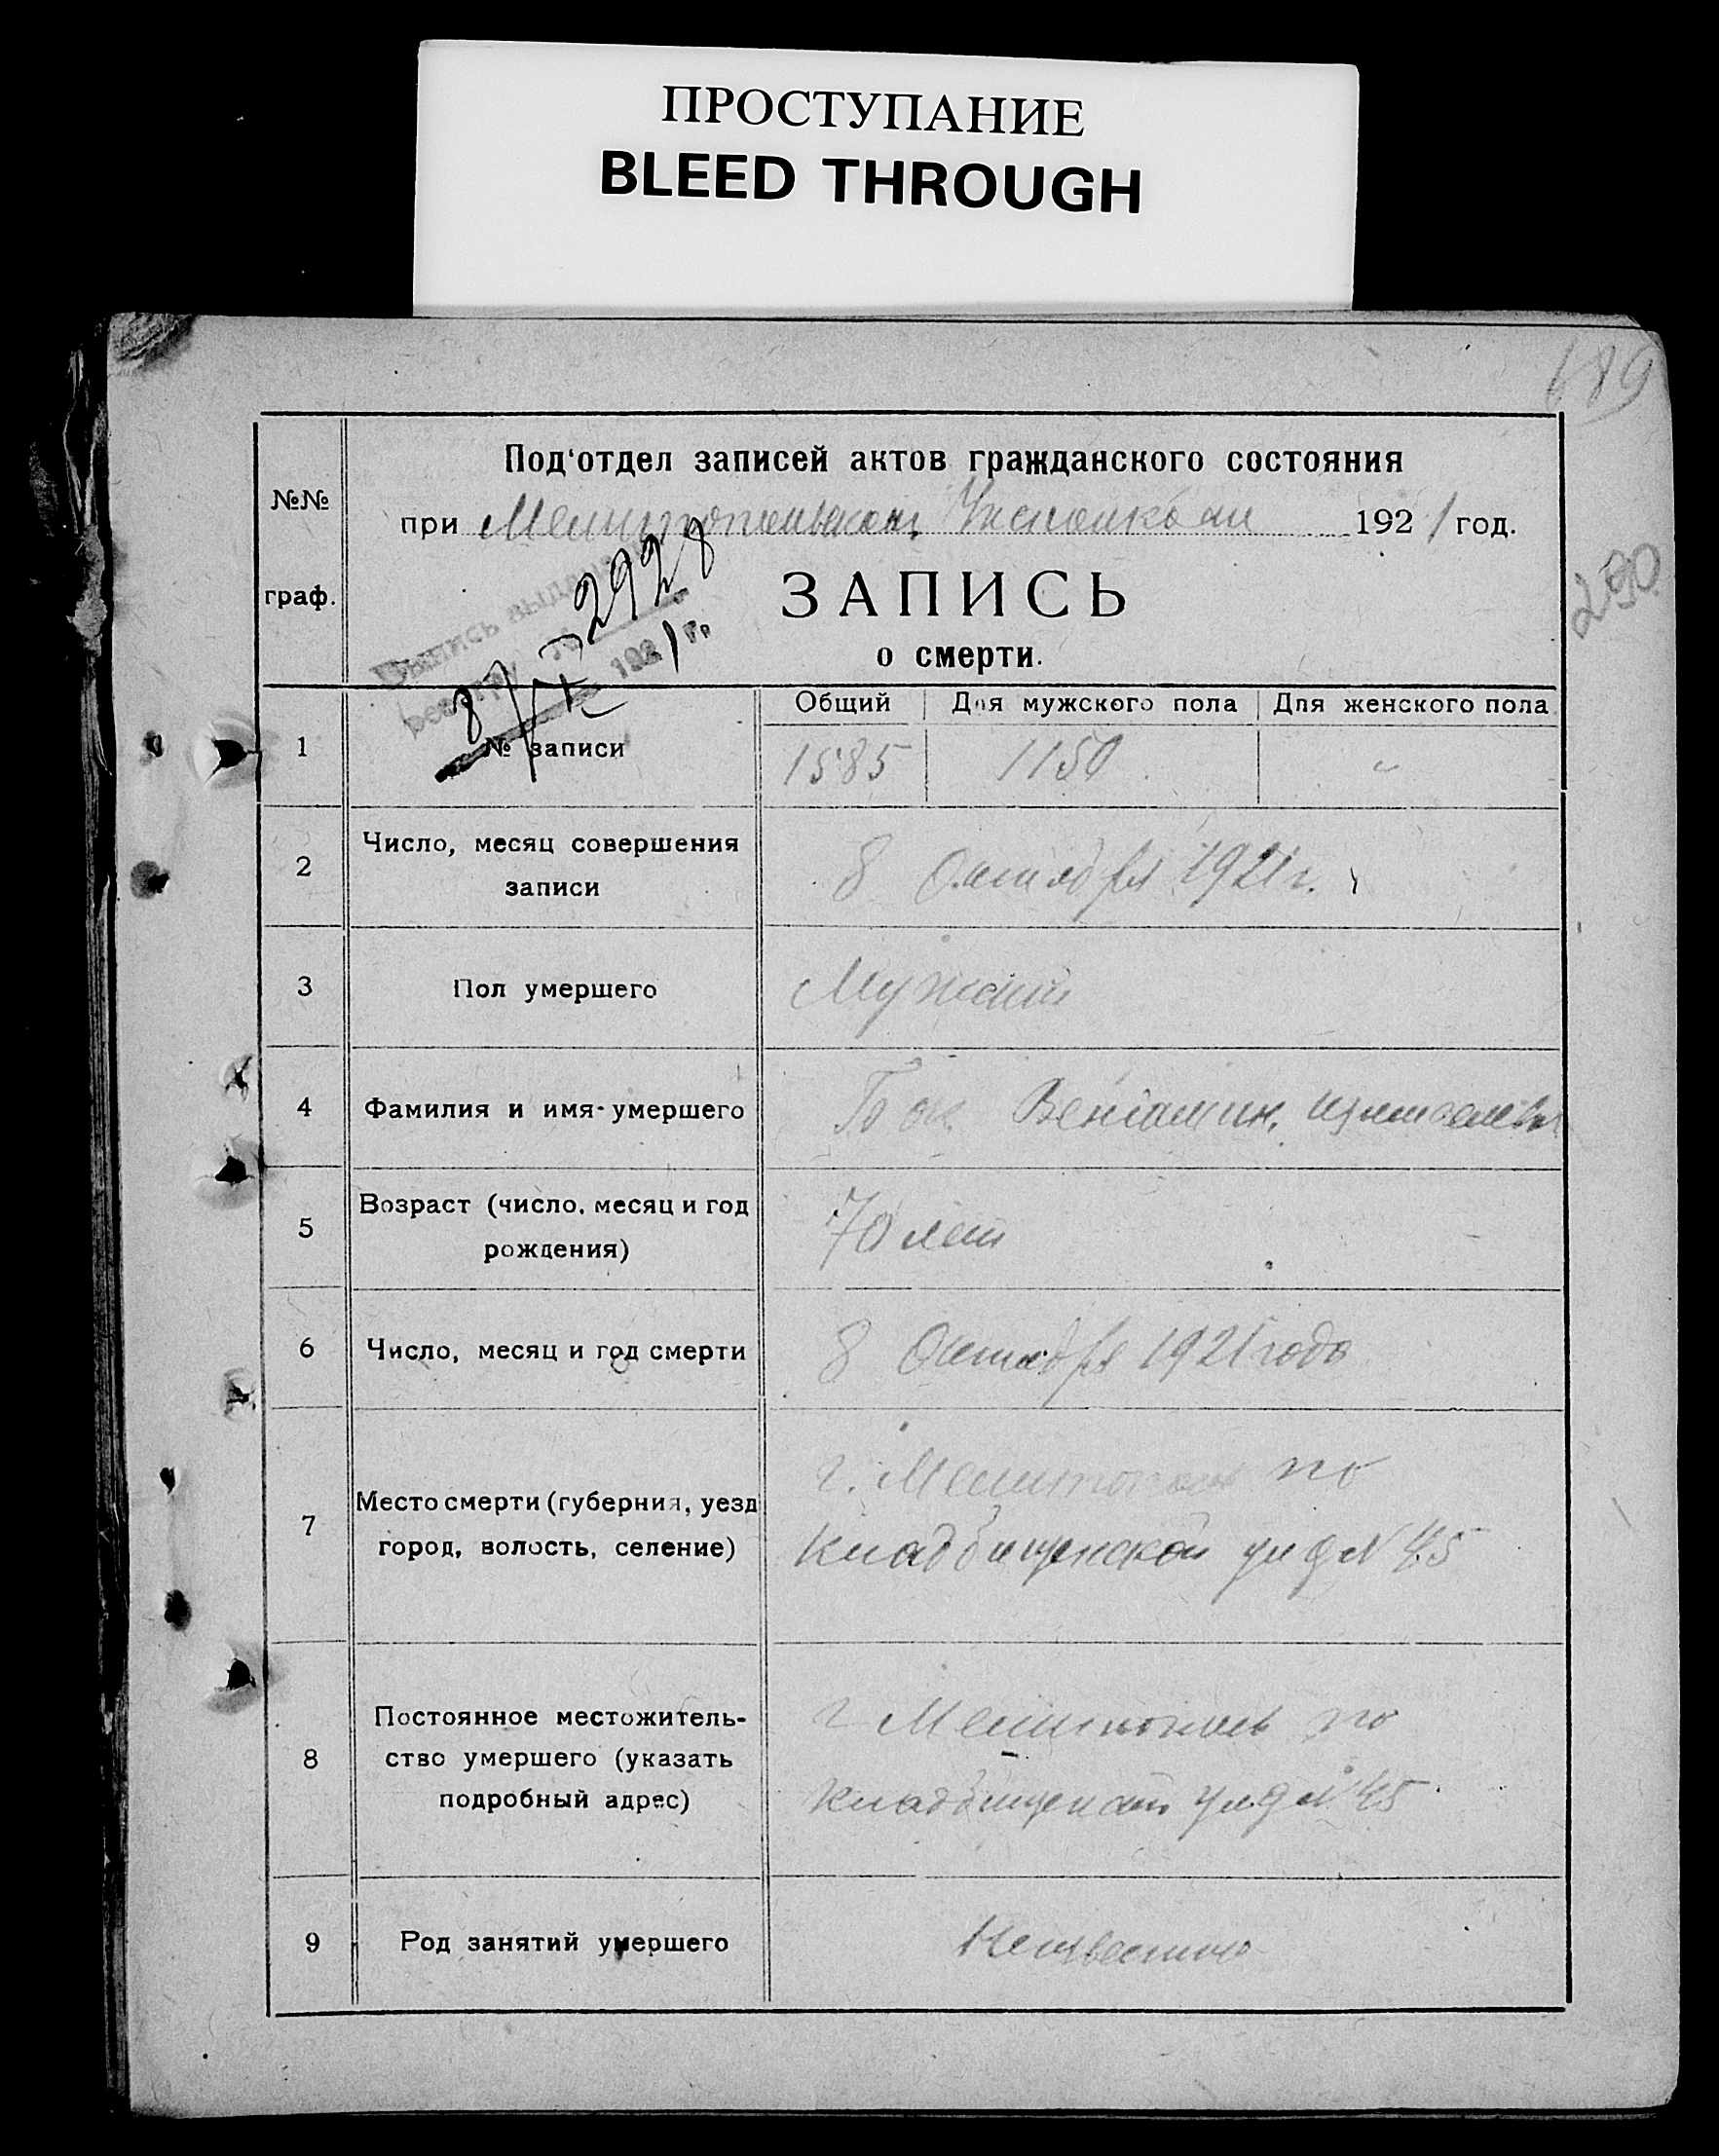 ПРОСТУПАНИЕ
BLEED THROUGH
689
290
№№ граф.
Под'отдел записей актов гражданского состояния
при Мелитопольском Исполкоме 1921 год.
ЗАПИСЬ
о смерти.
Выпись выдана
реестр № 2928
8/X 1921 г.
Общий Для мужского пола Для женского пола
1 № записи 1585 1150 "
2 Число, месяц совершения
записи
8 Октября 1921 г.
3 Пол умершего Мужской
4 Фамилия и имя умершего Бок Вениамин
5 Возраст (число, месяц и год
рождения)
70 лет
6 Число, месяц и год смерти 8 Октября 1921 года
7 Место смерти (губерния, уезд
город, волость, селение)
г. Мелитополь по
Кладбищенской ул д № 45
8 Постоянное местожитель-
ство умершего (указать
подробный адрес)
г Мелитополь по
Кладбищенской ул д № 45
9 Род занятий умершего Неизвестно